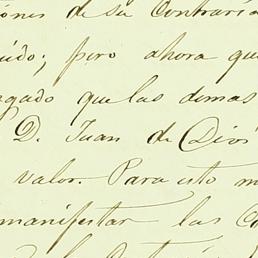 iones de su contrari
uido; pero ahora que
egado que las demas
D. Juan de Dios
valor. Para esto m
manifestar las